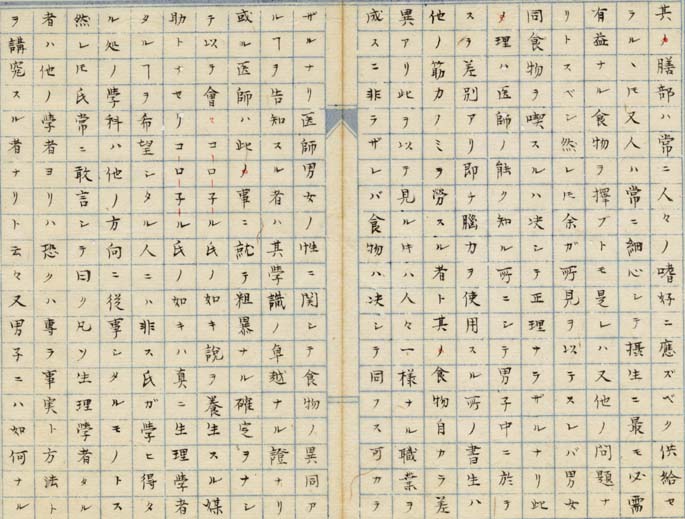 其メ膳部ハ常ニ人々ノ嗜好ニ應ズベク供給セ
ラルヽ𪜈又人ハ常ニ細心シテ摂生ニ最モ必需
有益ナル食物ヲ擇ブトモ是レハ又他ノ問題ナ
リトスベシ然レ𪜈余ガ所見ヲ以テスレバ男女
同食物ヲ喫スルハ决シテ正理ナラザルナリ此
メ理ハ医師ノ能ク知ル所ニシテ男子中ニ於テ
スラ差別アリ即チ腦力ヲ使用スル所ノ書生ハ
他ノ筋カノミヲ勞スル者ト其メ食物自カラ差
異アリ此ヲ以テ見ル𬼀ハ人々一様ナル職業ヲ
成スニ非ラザレバ食物ハ决シテ同フス可カラ
ザルナリ医師男女ノ性ニ関シテ食物ノ異同ア
ルヿヲ告知スル者ハ其學識ノ卓越ナル證ナリ
或ル医師ハ此メ事ニ就テ粗暴ナル確定ヲナシ
テ以テ會マコロ子ル氏ノ如キ説ヲ養生スル媒
助トナセリコロ子ル氏ノ如キハ真ニ生理學者
タルヿヲ希望シタル人ニハ非ス氏ガ學ヒ得タ
ル処ノ學科ハ他ノ方向ニ從事シタルモノトス
然レ𪜈氏常ニ敢言シテ曰ク凡ソ生理學者タル
者ハ他ノ學者ヨリハ恐クハ專ラ事実ト方法ト
ヲ講究スル者ナリト云々又男子ニハ如何ナル